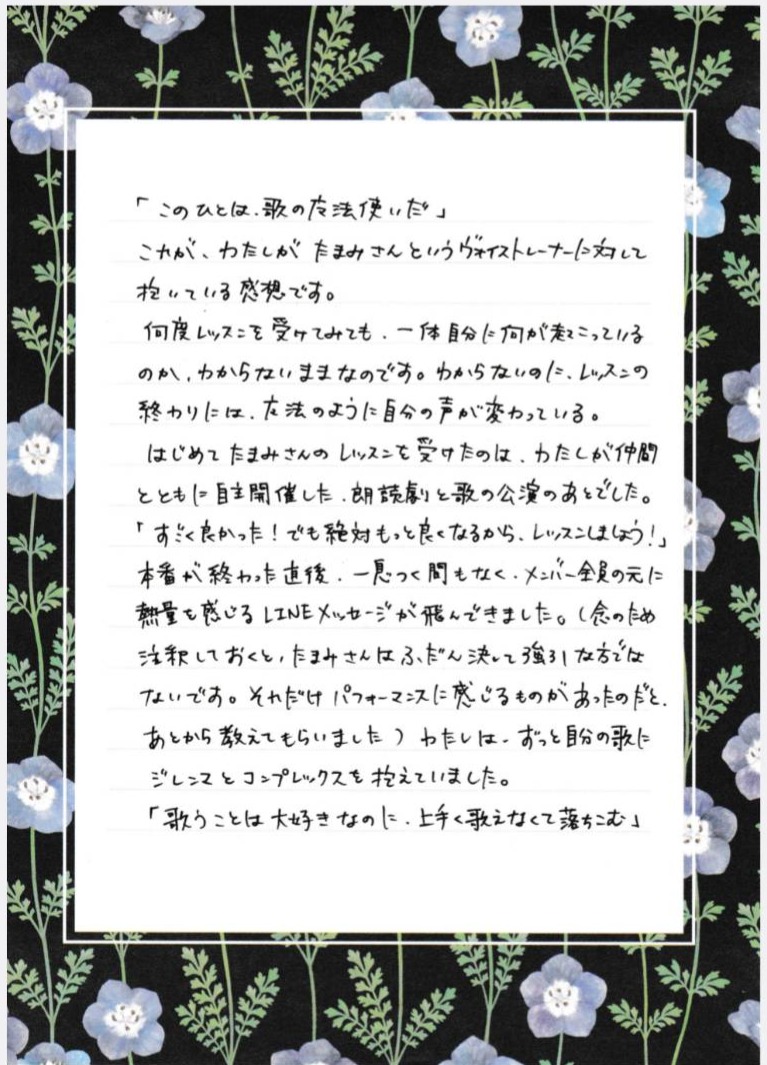 「このひとは、歌の魔法使いだ」
これが、わたしが たまみさんというヴォイストレーナーに対して
抱いている感想です。
何度レッスンを受けてみても、一体自分に何が起こっている
のか、わからないままなのです。わからないのに、レッスンの
終わりには、魔法のように自分の声が変わっている。
はじめてたまみさんのレッスンを受けたのは、わたしが仲間
とともに自主開催した、朗読劇と歌の公演のあとでした。
「すごく良かった！でも絶対もっと良くなるから、レッスンしましょう！」
本番が終わった直後、一息つく間もなく、メンバー全員の元に
熱量を感じるLINEメッセージが飛んできました。（念のため
注釈しておくと、たまみさんはふだん決して強引な方では
ないです。それだけパフォーマンスに感じるものがあったのだと、
あとから教えてもらいました）わたしは、ずっと自分の歌に
ジレンマとコンプレックスを抱えていました。
「歌うことは大好きなのに、上手く歌えなくて落ちこむ」